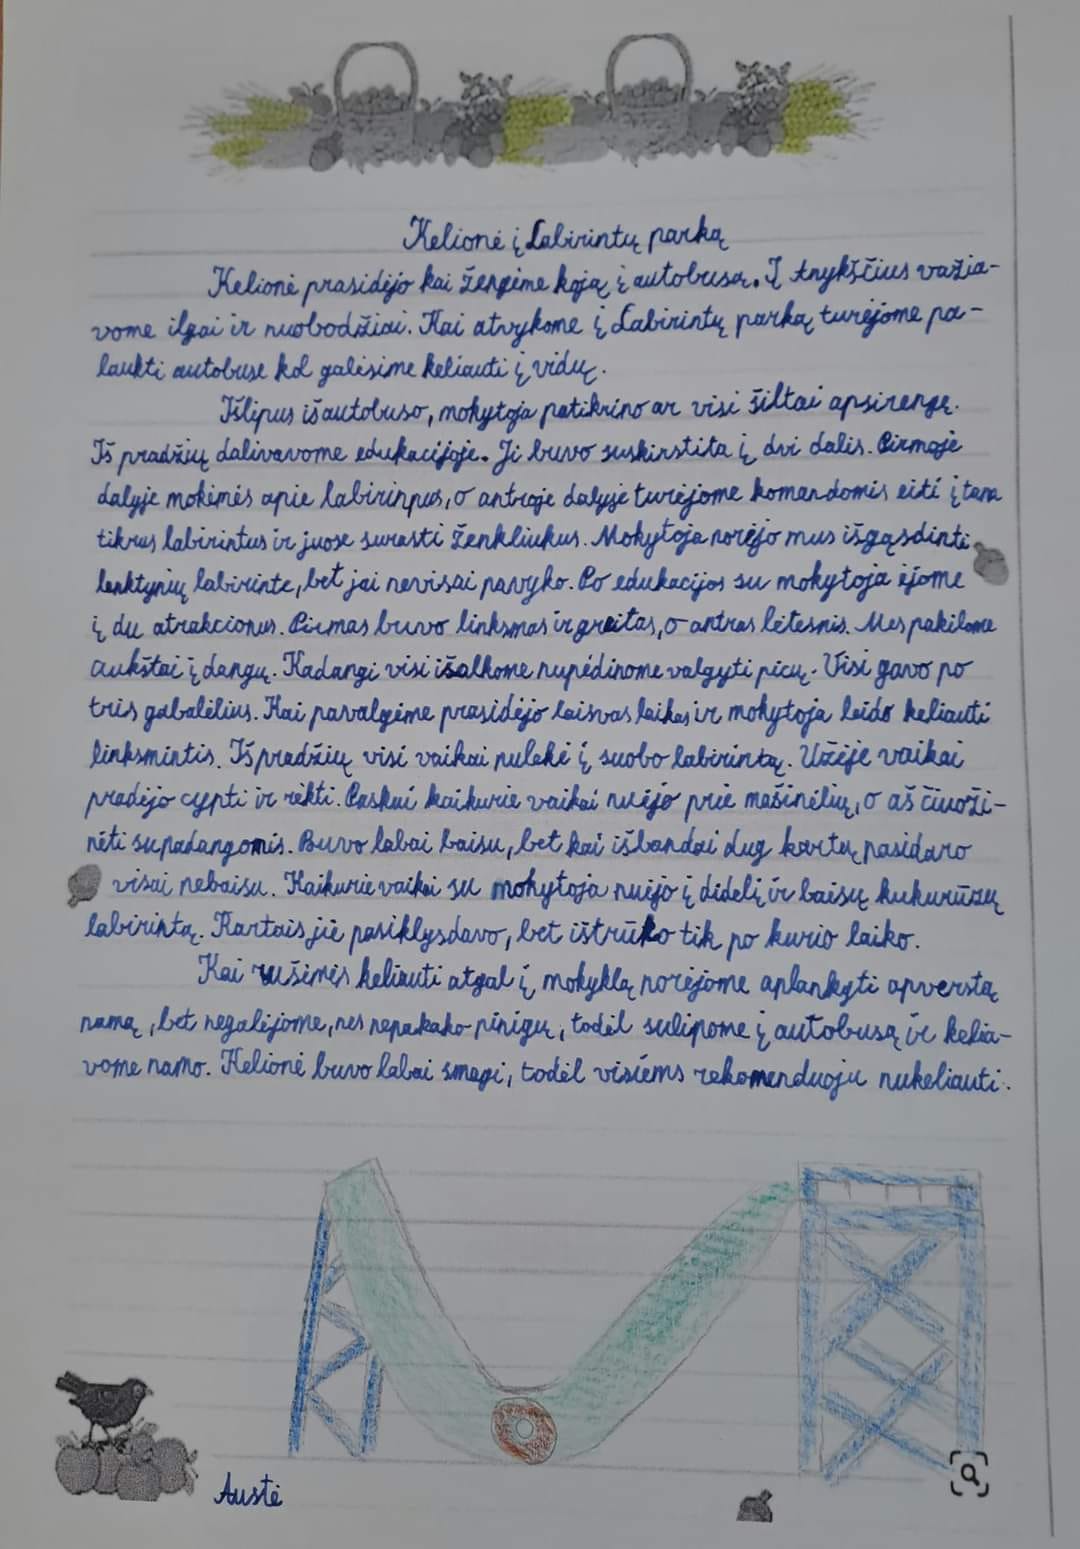 Kelionė į Labirintų parką
Kelionė prasidėjo kai žengėme koją į autobusą. Į Anykščius važia-
vome ilgai ir nuobodžiai. Kai atvykome į Labirintų parką turėjome pa-
laukti autobuse kol galėsime keliauti į vidų.
Išlipus iš autobuso, mokytoja patikrino ar visi šiltai apsirengę.
Iš pradžių dalivavome edukacijoje. Ji buvo suskirstita į dvi dalis. Pirmoje
dalyje mokėmės apie labirinpus, o antroje dalyje turėjome komandomis eiti į tam
tikrus labirintus ir juose surasti ženkliukus. Mokytoja norėjo mus išgąsdinti
lenktynių labirinte, bet jai nevisai pavyko. Po edukacijos su mokytoja ėjome
į du atrakcionus. Pirmas buvo linksmas ir greitas, o antras lėtesnis. Mes pakilome
aukštai į dangų. Kadangi visi išalkome nupėdinome valgyti picų. Visi gavo po
tris gabalėlius. Kai pavalgėme prasidėjo laisvas laikas ir mokytoja leido keliauti
linksmintis. Iš pradžių visi vaikai nulėkė į siaubo labirintą. Užėję vaikai
pradėjo cypti ir rėkti. Paskui kaikurie vaikai nuėjo prie mašinėlių, o aš čiuoži-
nėti su padangomis. Buvo labai baisu, bet kai išbandai dug kartų pasidaro
visai nebaisu. Kaikurie vaikai su mokytoja nuėjo į didelį ir baisų kukurūzų
labirintą. Kartais jie pasiklysdavo, bet ištrūko tik po kurio laiko.
Kai rušimės keliauti atgal į mokyklą norėjome aplankyti apverstą
namą, bet negalėjome, nes nepakako pinigų, todėl sulipome į autobusą ir kelia-
vome namo. Kelionė buvo labai smagi, todėl visiems rekomenduoju nukeliauti.
Austė